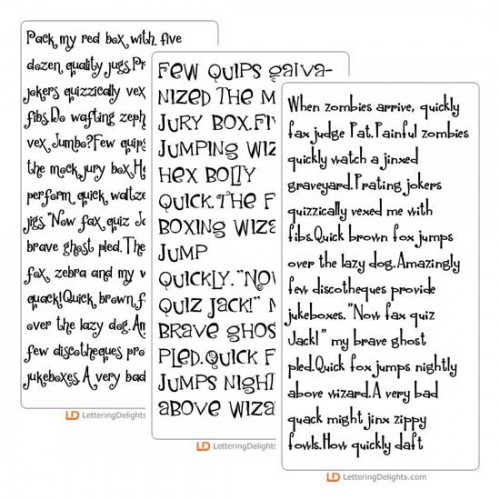 Pack my red box with five
dozen quality jugs.Pr
jokers quizzically vex
fibs.Do wafting zeph
vex Jumbo?Few quips
the mock jury box.H
perform quick waltze
jigs."Now fax quiz J
brave ghost pled.The
fox, zebra and my w
quack!Quick brown f
over the lazy dog.Am
few discotheques pro
jukeboxes.A very bad
LD LetteringDelights
Few quips galva-
nized the m
jury box.Fi
jumping wiz
hex bolly
quick.The f
boxing wiza
jump
quickly."Nov
quiz Jack!" m
brave ghos
pled.Quick f
jumps night
above wiza
LD LetteringDelights
When zombies arrive, quickly
fax judge Pat.Painful zombies
quickly watch a jinxed
graveyard.Prating jokers
quizzically vexed me with
fibs.Quick brown fox jumps
over the lazy dog.Amazingly
few discotheques provide
jukeboxes."Now fax quiz
Jack!" my brave ghost
pled.Quick fox jumps nightly
above wizard.A very bad
quack might jinx zippy
fowls.How quickly daft
LD LetteringDelights.com